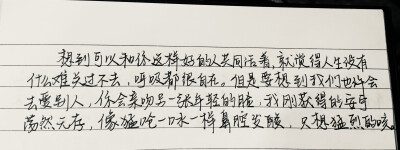 想到可以和你这样好的人共同活着，就觉得人生没有
什么难关过不去，呼吸都很自在。但是要想到我们也许会
去爱别人，你会亲吻另一张年轻的脸，我刚获得的安宁
荡然无存，像猛呛一口水一样鼻腔发酸，只想猛烈的咳。